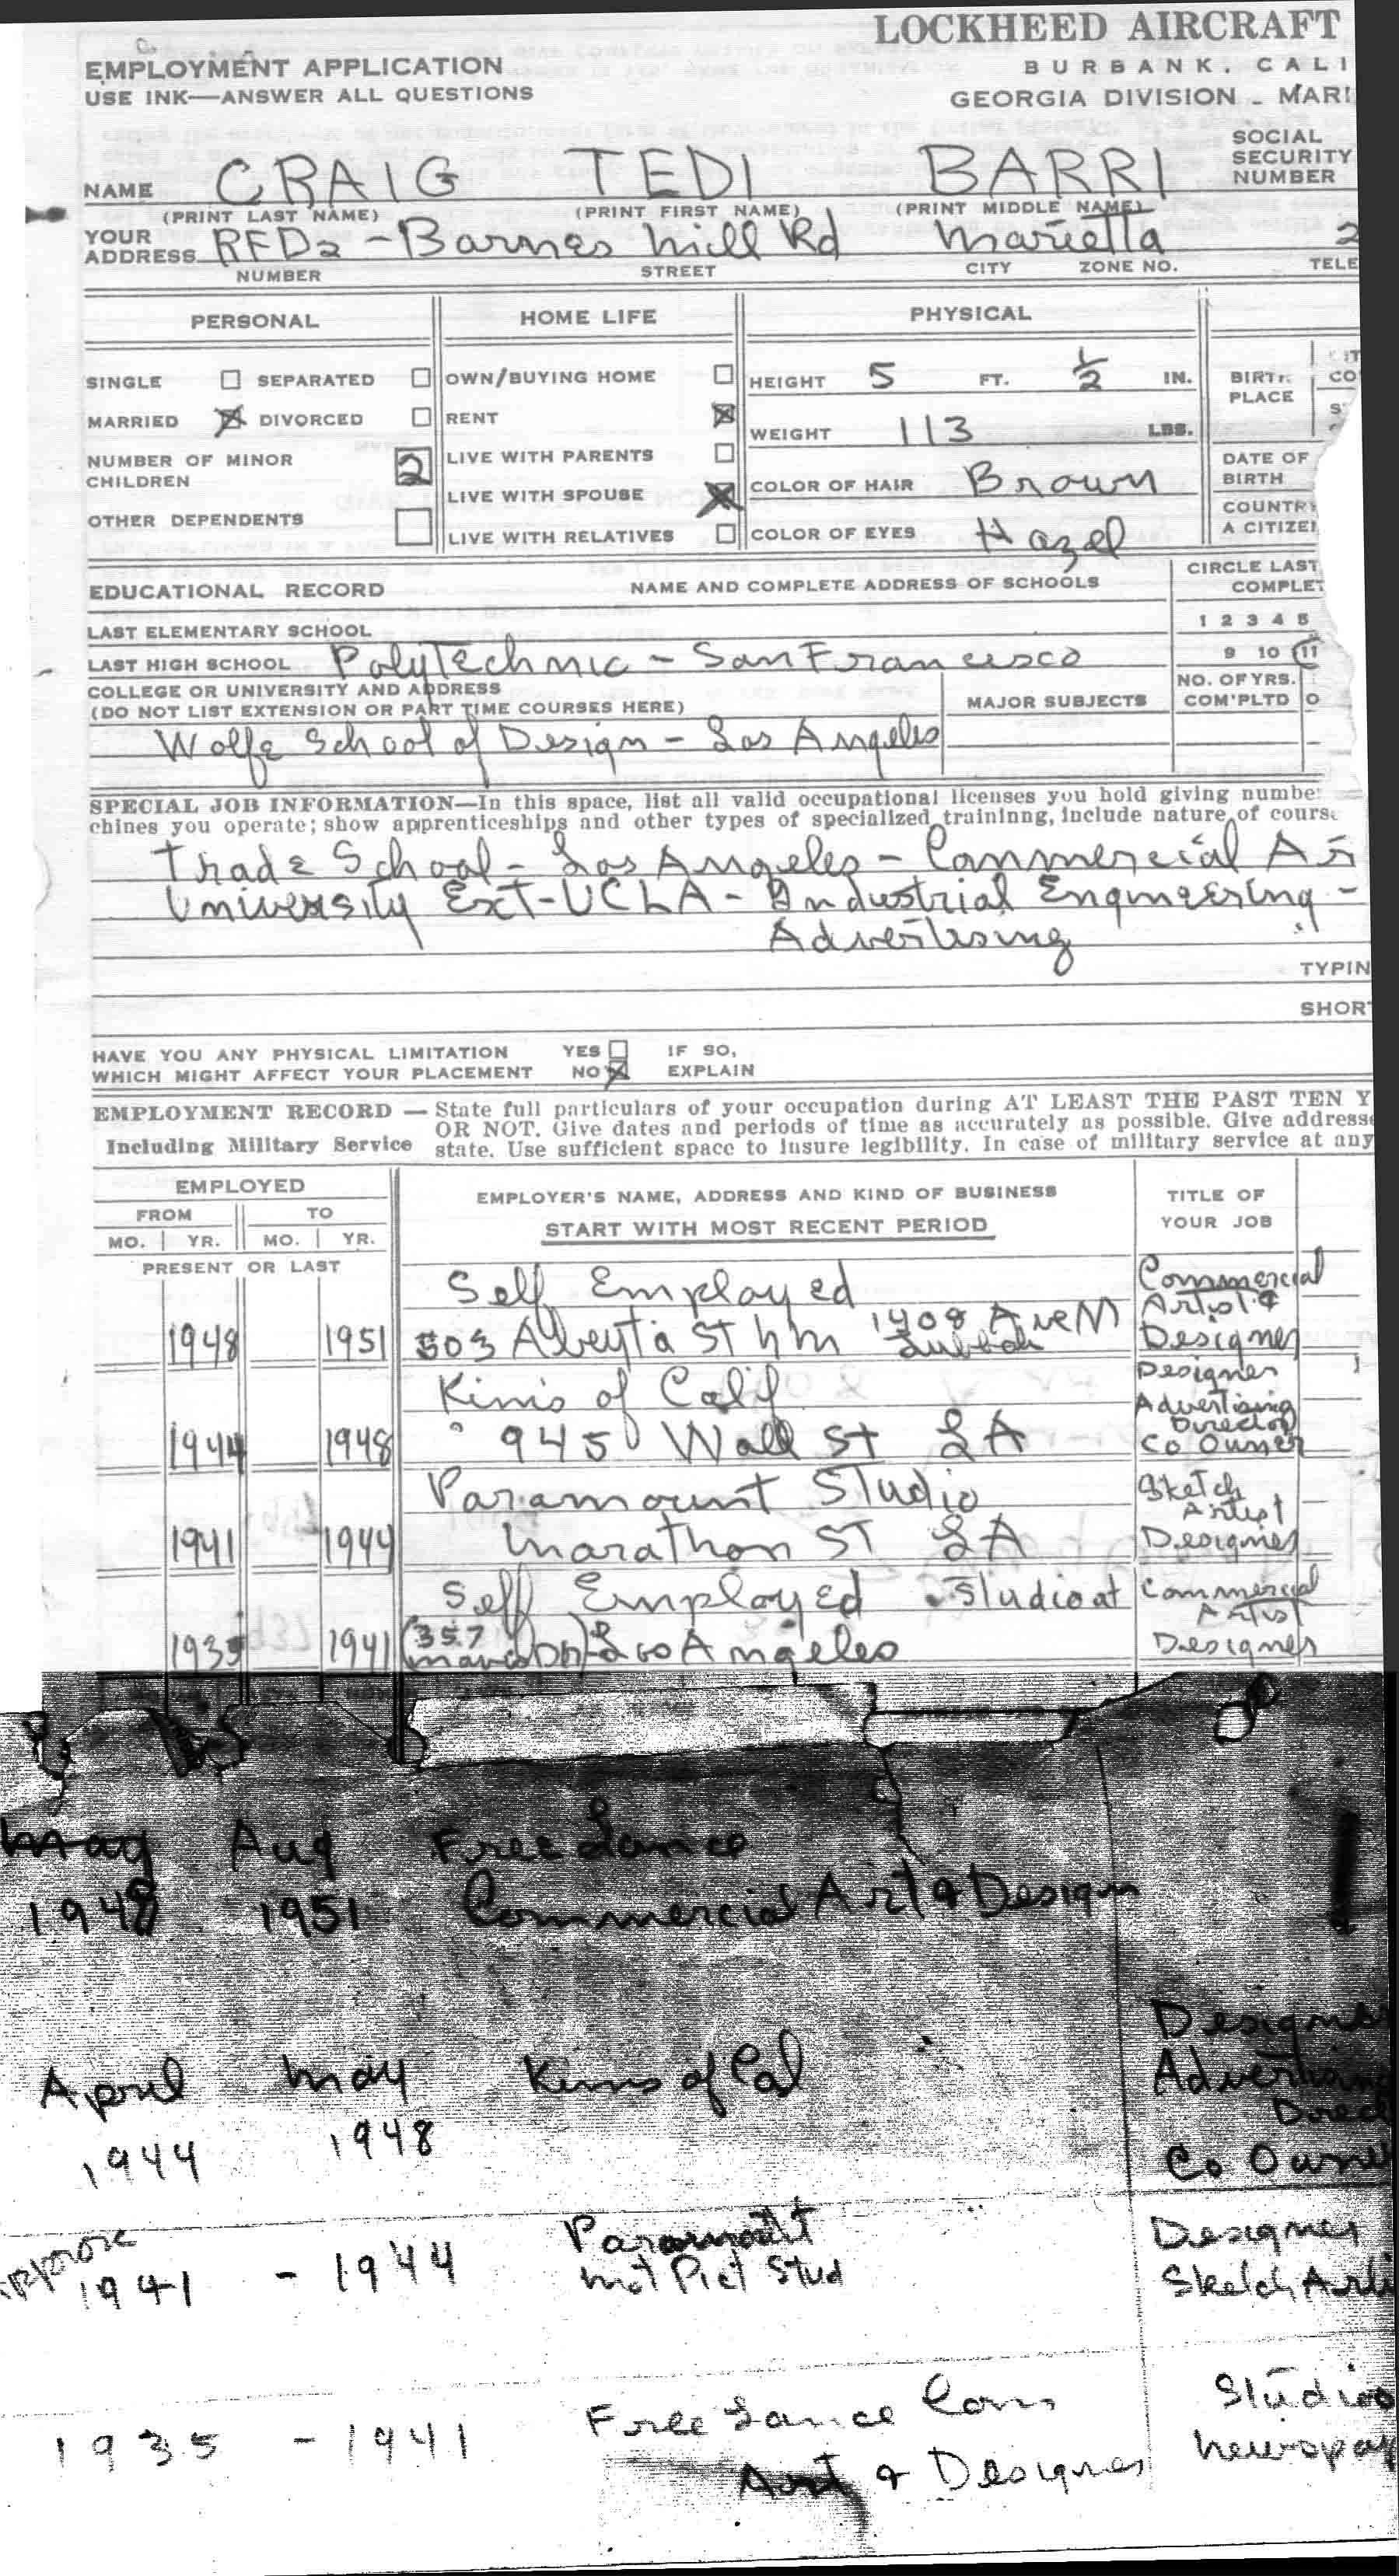 LOCKHEED AIRCRAFT
EMPLOYMENT APPLICATION
BURBANK, CALI
USE INK—ANSWER ALL QUESTIONS
GEORGIA DIVISION - MARI
SOCIAL
SECURITY
NUMBER
NAME CRAIG TEDI BARRI
(PRINT LAST NAME) (PRINT FIRST NAME) (PRINT MIDDLE NAME)
YOUR
ADDRESS RFD2 - Barnes Mill Rd Marietta 2
NUMBER STREET CITY ZONE NO. TELE
PERSONAL HOME LIFE PHYSICAL
SINGLE SEPARATED OWN/BUYING HOME HEIGHT 5 FT. 1/2 IN. BIRTH
PLACE CO
MARRIED DIVORCED RENT WEIGHT 113 LBS.
NUMBER OF MINOR
CHILDREN 2 LIVE WITH PARENTS DATE OF
BIRTH
LIVE WITH SPOUSE COLOR OF HAIR Brown COUNTRY
A CITIZEN
OTHER DEPENDENTS LIVE WITH RELATIVES COLOR OF EYES Hazel
EDUCATIONAL RECORD NAME AND COMPLETE ADDRESS OF SCHOOLS CIRCLE LAST
COMPLET
LAST ELEMENTARY SCHOOL 1 2 3 4 5
LAST HIGH SCHOOL PolyTechnic - San Francisco 9 10 11
COLLEGE OR UNIVERSITY AND ADDRESS
(DO NOT LIST EXTENSION OR PART TIME COURSES HERE) MAJOR SUBJECTS NO. OF YRS.
COM'PLTD
Wolfe School of Design - Los Angeles
SPECIAL JOB INFORMATION—In this space, list all valid occupational licenses you hold giving number
chines you operate; show apprenticeships and other types of specialized traininng, include nature of course
Trade School - Los Angeles - Commercial Ar
University Ext-UCLA - Industrial Engineering -
Advertising
TYPIN
SHORT
HAVE YOU ANY PHYSICAL LIMITATION YES IF SO,
WHICH MIGHT AFFECT YOUR PLACEMENT NO EXPLAIN
EMPLOYMENT RECORD — State full particulars of your occupation during AT LEAST THE PAST TEN Y
OR NOT. Give dates and periods of time as accurately as possible. Give addresse
Including Military Service state. Use sufficient space to insure legibility. In case of military service at any
EMPLOYED EMPLOYER'S NAME, ADDRESS AND KIND OF BUSINESS TITLE OF
FROM TO START WITH MOST RECENT PERIOD YOUR JOB
MO. YR. MO. YR.
PRESENT OR LAST
Self Employed Commercial
Artist &
1948 1951 503 St 1408 Ave M Designer
Kim's of Calif Designer
Advertising
Director
1944 1948 945 Wall St LA Co Owner
Paramount Studio Sketch
Artist
1941 1944 Marathon ST LA Designer
Self Employed Studio at Commercial
Artist
1935 1941 (357 ) Los Angeles Designer
May Aug Free Lance
1948 1951 Commercial Art & Design
Designer
April May Kims of Cal Advertising
Direc
1944 1948 Co Owne
Approx Paramount Designer
1941 - 1944 Mot Pict Stud Sketch Arti
Free Lance Com Studios
1935 - 1941 Art & Designer Newspap